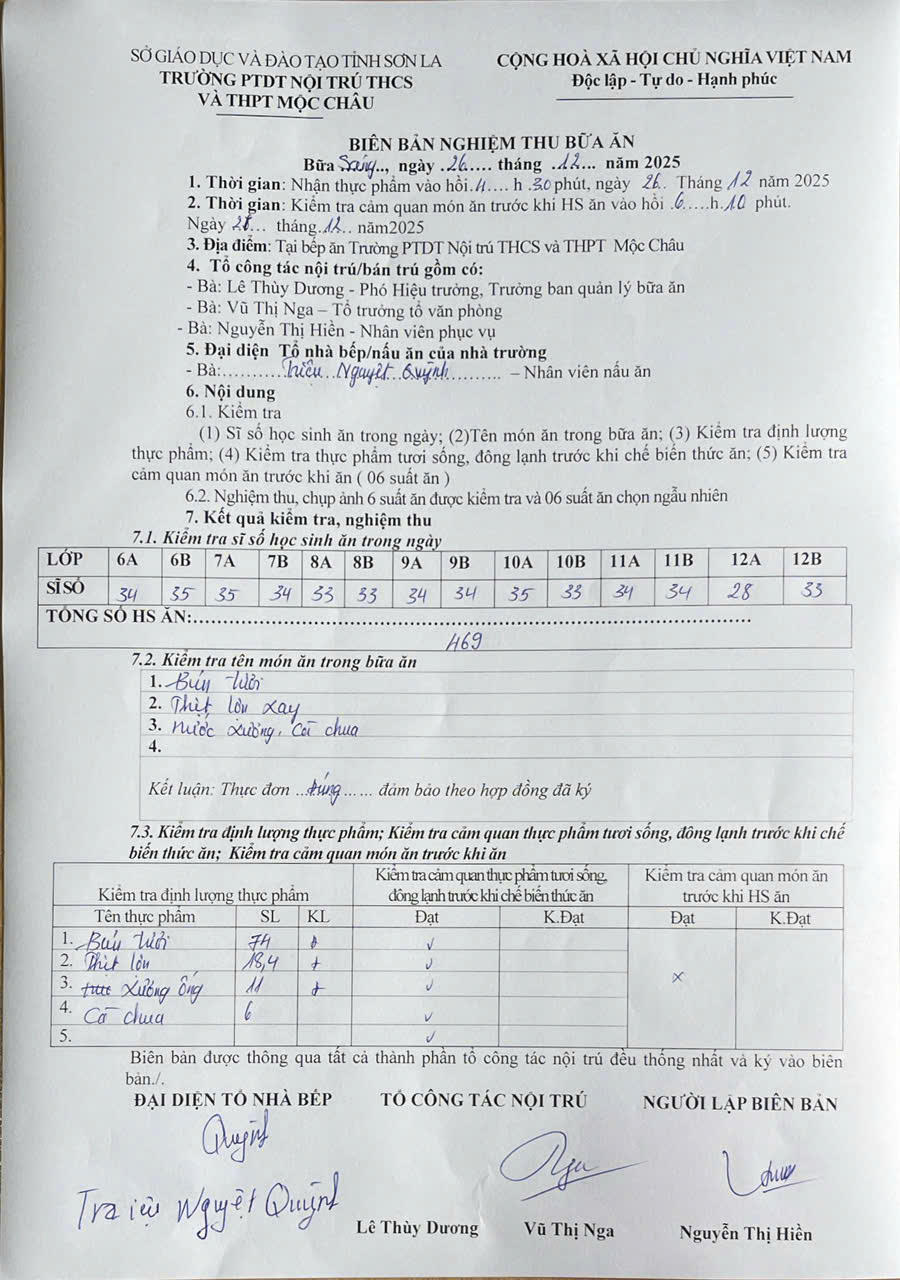 SỞ GIÁO DỤC VÀ ĐÀO TẠO TỈNH SƠN LA
TRƯỜNG PTDT NỘI TRÚ THCS
VÀ THPT MỘC CHÂU
CỘNG HOÀ XÃ HỘI CHỦ NGHĨA VIỆT NAM
Độc lập - Tự do - Hạnh phúc
BIÊN BẢN NGHIỆM THU BỮA ĂN
Bữa Sáng.., ngày .26..... tháng .12... năm 2025
1. Thời gian: Nhận thực phẩm vào hồi.4....h .30 phút, ngày 26.. Tháng 12 năm 2025
2. Thời gian: Kiểm tra cảm quan món ăn trước khi HS ăn vào hồi .6.....h.10 phút.
Ngày ... tháng.12.. năm2025
3. Địa điểm: Tại bếp ăn Trường PTDT Nội trú THCS và THPT Mộc Châu
4. Tổ công tác nội trú/bán trú gồm có:
- Bà: Lê Thùy Dương - Phó Hiệu trưởng, Trưởng ban quản lý bữa ăn
- Bà: Vũ Thị Nga – Tổ trưởng tổ văn phòng
- Bà: Nguyễn Thị Hiền - Nhân viên phục vụ
5. Đại diện Tổ nhà bếp/nấu ăn của nhà trường
- Bà:..........Triệu...Nguyệt...Quỳnh........... – Nhân viên nấu ăn
6. Nội dung
6.1. Kiểm tra
(1) Sĩ số học sinh ăn trong ngày; (2)Tên món ăn trong bữa ăn; (3) Kiểm tra định lượng
thực phẩm; (4) Kiểm tra thực phẩm tươi sống, đông lạnh trước khi chế biến thức ăn; (5) Kiểm tra
cảm quan món ăn trước khi ăn ( 06 suất ăn )
6.2. Nghiệm thu, chụp ảnh 6 suất ăn được kiểm tra và 06 suất ăn chọn ngẫu nhiên
7. Kết quả kiểm tra, nghiệm thu
7.1. Kiểm tra sĩ số học sinh ăn trong ngày
LỚP 6A 6B 7A 7B 8A 8B 9A 9B 10A 10B 11A 11B 12A 12B
SĨ SỐ 34 35 35 34 33 33 34 34 35 33 34 34 28 33
TỔNG SỐ HS ĂN:..........................................................................................
469
7.2. Kiểm tra tên món ăn trong bữa ăn
1. Bún tươi
2. Thịt lợn xay
3. Nước xương, cà chua
4.
Kết luận: Thực đơn ...đúng...... đảm bảo theo hợp đồng đã ký
7.3. Kiểm tra định lượng thực phẩm; Kiểm tra cảm quan thực phẩm tươi sống, đông lạnh trước khi chế
biến thức ăn; Kiểm tra cảm quan món ăn trước khi ăn
Kiểm tra định lượng thực phẩm
Kiểm tra cảm quan thực phẩm tươi sống,
đông lạnh trước khi chế biến thức ăn
Kiểm tra cảm quan món ăn
trước khi HS ăn
Tên thực phẩm SL KL Đạt K.Đạt Đạt K.Đạt
1. Bún tươi 74 ✓
2. Thịt lợn 18,4 + ✓
3. xương ống 11 + ✓ x
4. Cà chua 6 ✓
5. ✓
Biên bản được thông qua tất cả thành phần tổ công tác nội trú đều thống nhất và ký vào biên
bản./.
ĐẠI DIỆN TỔ NHÀ BẾP TỔ CÔNG TÁC NỘI TRÚ NGƯỜI LẬP BIÊN BẢN
Quỳnh Nga
Nguyệt Quỳnh
Lê Thùy Dương Vũ Thị Nga Nguyễn Thị Hiền